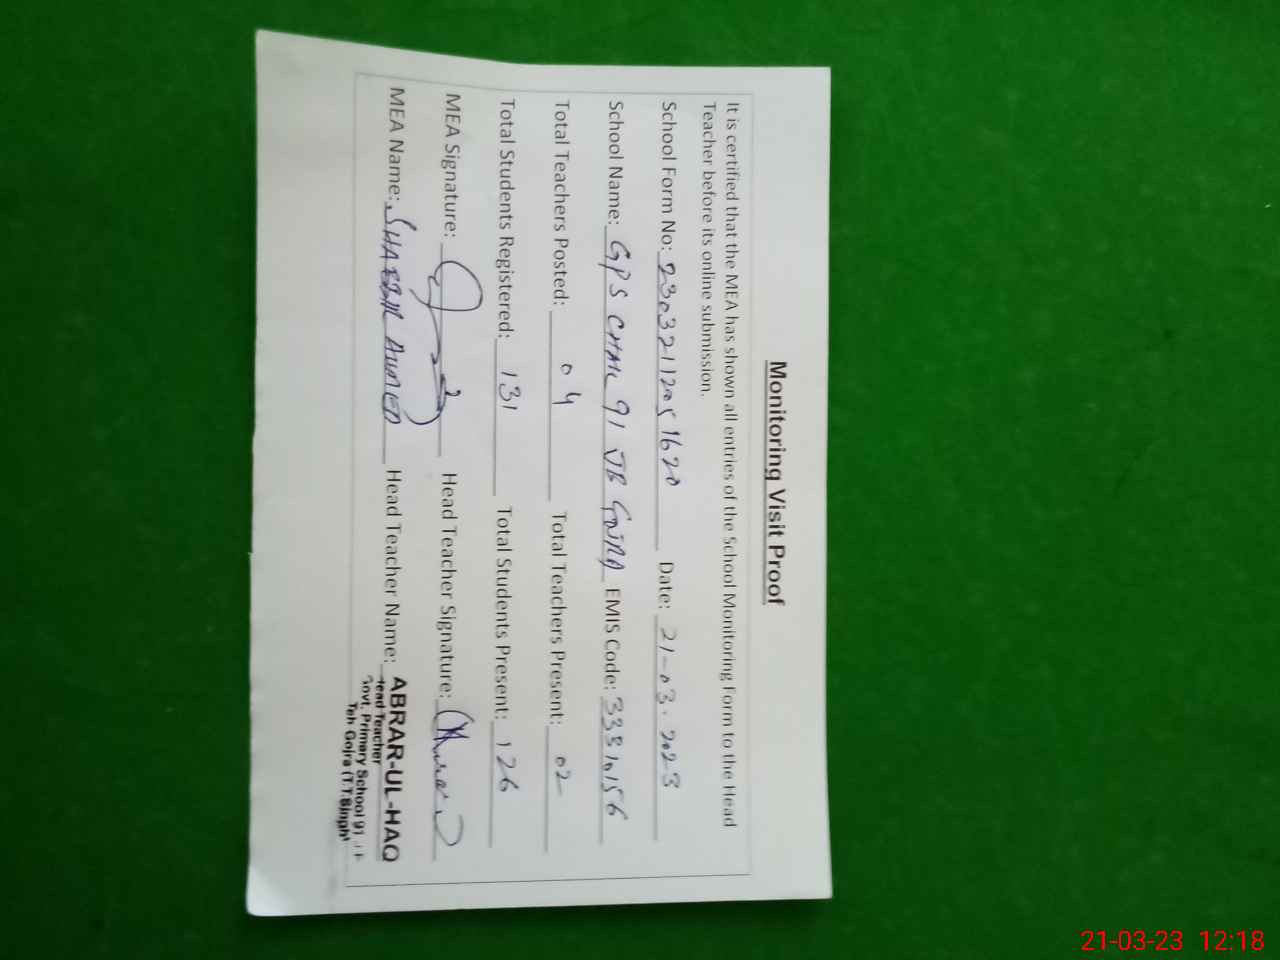 Monitoring Visit Proof
It is certified that the MEA has shown all entries of the School Monitoring Form to the Head
Teacher before its online submission.
School Form No: 23032112051620 Date: 21-03-2023
School Name: GPS CHAK 91 JB GOJRA EMIS Code: 33310156
Total Teachers Posted: 04 Total Teachers Present: 02
Total Students Registered: 131 Total Students Present: 126
MEA Signature: Head Teacher Signature:
MEA Name: SHABBIR AHMED Head Teacher Name: ABRAR-UL-HAQ
Head Teacher
Govt. Primary School 91
Teh Gojra (T.T.Singh)
21-03-23 12:18